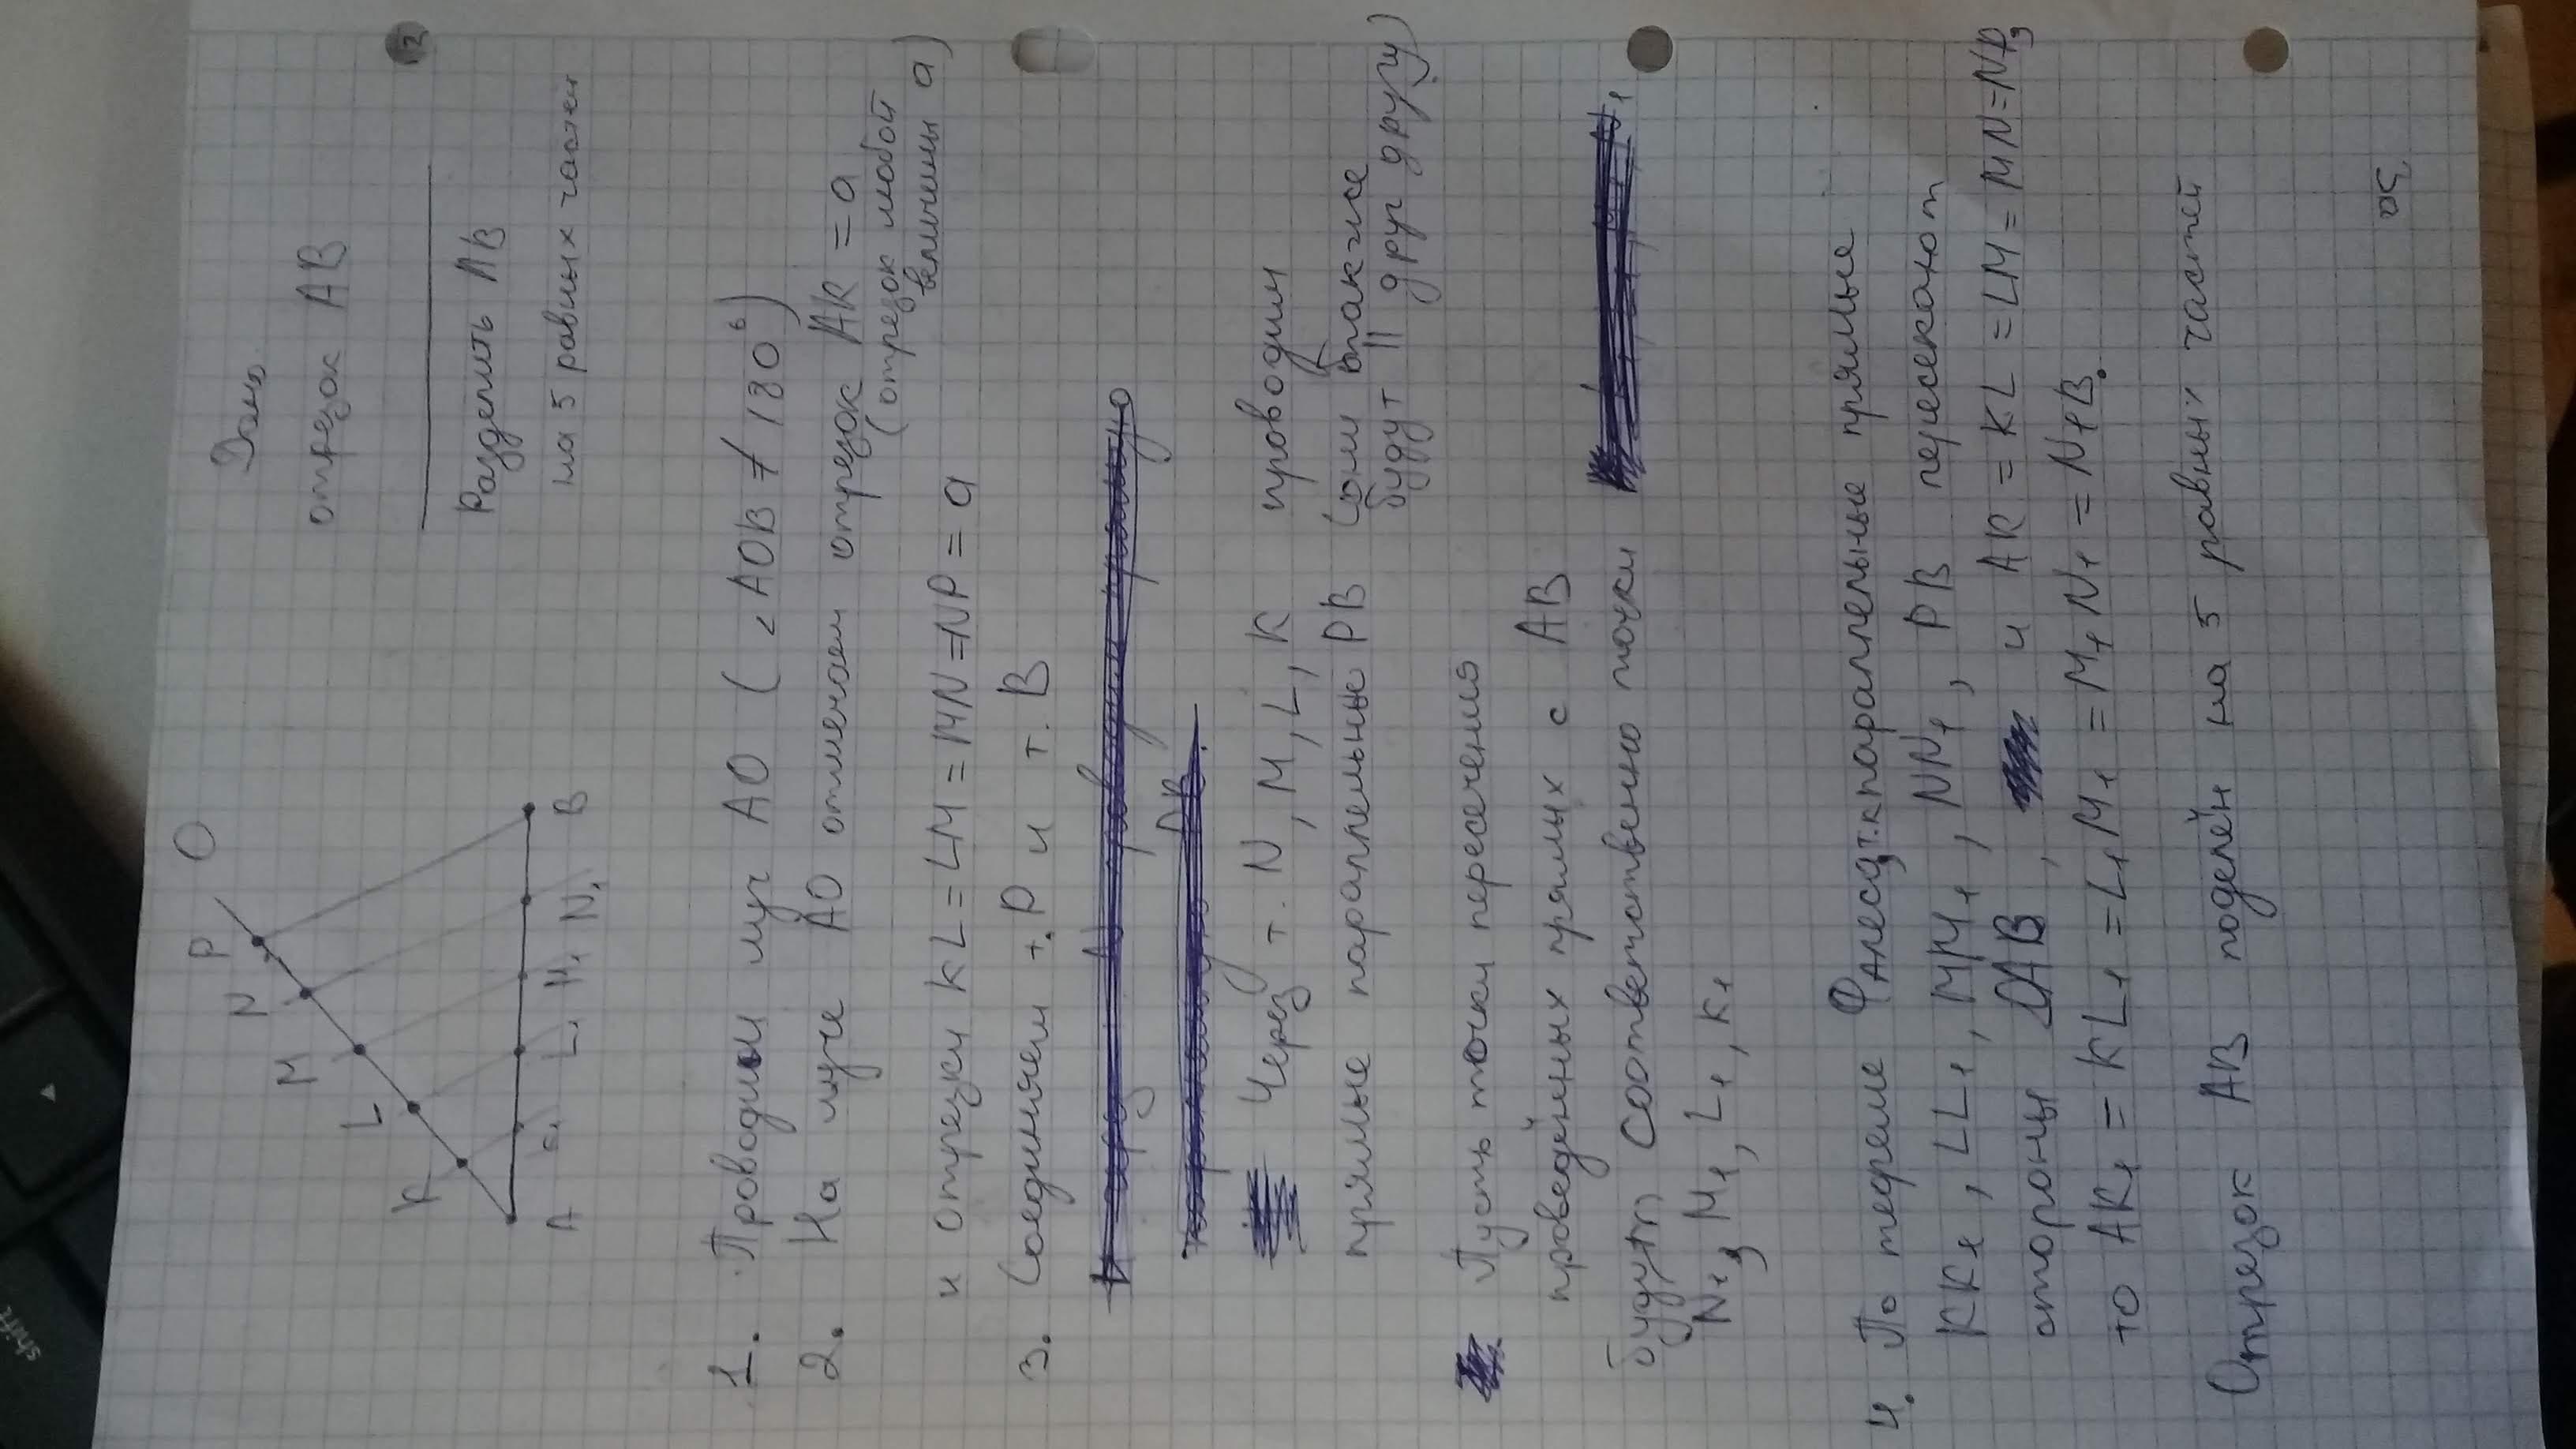 Дано
отрезок AB
Разделить AB
на 5 равных частей
O
P
N
M
L
K
A
K₁
L₁
M₁
N₁
B
1. Проводим луч AO (∠AOB ≠ 180°)
2. На луче AO отмечаем отрезок AK = a
(отрезок любой
величины a)
и отрезки KL = LM = MN = NP = a
3. Соединяем т. P и т. B
Через т. N, M, L, K проводим
прямые параллельные PB (они также
будут || друг другу)
Пусть точки пересечения
проведённых прямых с AB
будут соответственно точки
N₁, M₁, L₁, K₁
4. По теореме Фалеса, т.к параллельные прямые
KK₁, LL₁, MM₁, NN₁, PB пересекают
стороны OAB, и AK = KL = LM = MN = NP,
то AK₁ = K L₁ = L₁M₁ = M₁N₁ = N₁B.
Отрезок AB поделён на 5 равных частей
shift